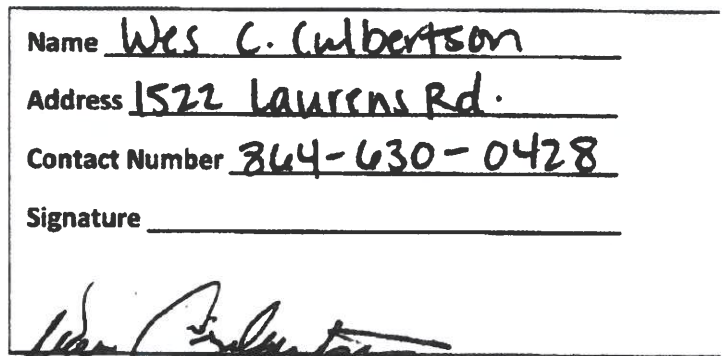 Name Wes C. Culbertson
Address 1522 Laurens Rd.
Contact Number 864-630-0428
Signature
Wes Culbertson